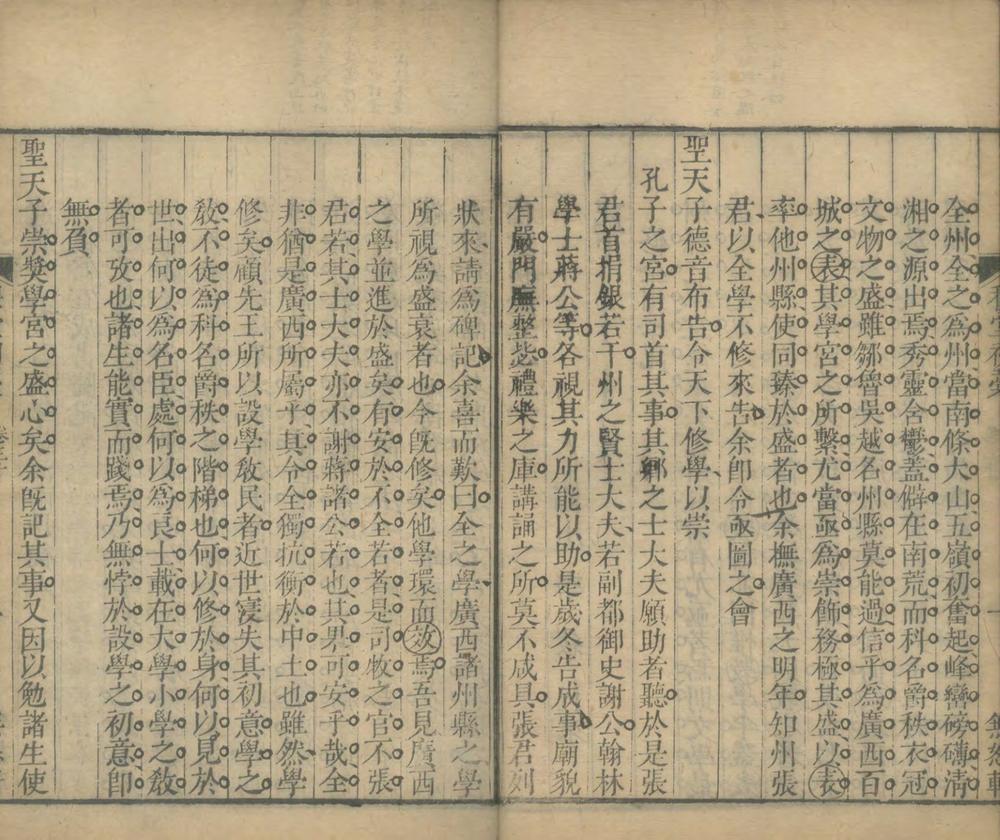 全州全之爲州當南條大山五嶺初奮起峰巒磅礴淸
湘之源出焉秀靈含鬱蓋僻在南荒而科名爵秩衣冠
文物之盛雖鄒魯吳越名州縣莫能過信乎爲廣西百
城之表其學宮之所繫尤當亟爲崇飾務極其盛以表
率他州縣使同臻於盛者也余撫廣西之明年知州張
君以全學不修來告余卽令亟圖之會
聖天子德音布告令天下修學以崇
孔子之宮有司首其事其鄕之士大夫願助者聽於是張
君首捐銀若干州之賢士大夫若副都御史謝公翰林
學士蔣公等各視其力所能以助是歲冬告成事廟貌
有嚴門廡整毖禮樂之庫講誦之所莫不咸具張君列
狀來請爲碑記余喜而歎曰全之學廣西諸州縣之學
所視爲盛衰者也今旣修矣他學環而效焉吾見廣西
之學並進於盛矣有安於不全若者是司牧之官不張
君若其士大夫亦不謝蔣諸公若也其界可安乎哉全
非猶是廣西所屬乎其令全獨抗衡於中土也雖然學
修矣顧先王所以設學敎民者近世寖失其初意學之
敎不徒爲科名爵秩之階梯也何以修於身何以見於
世出何以爲名臣處何以爲良士載在大學小學之敎
者可攷也諸生能實而踐焉乃無悖於設學之初意卽
無負
聖天子崇獎學宮之盛心矣余旣記其事又因以勉諸生使